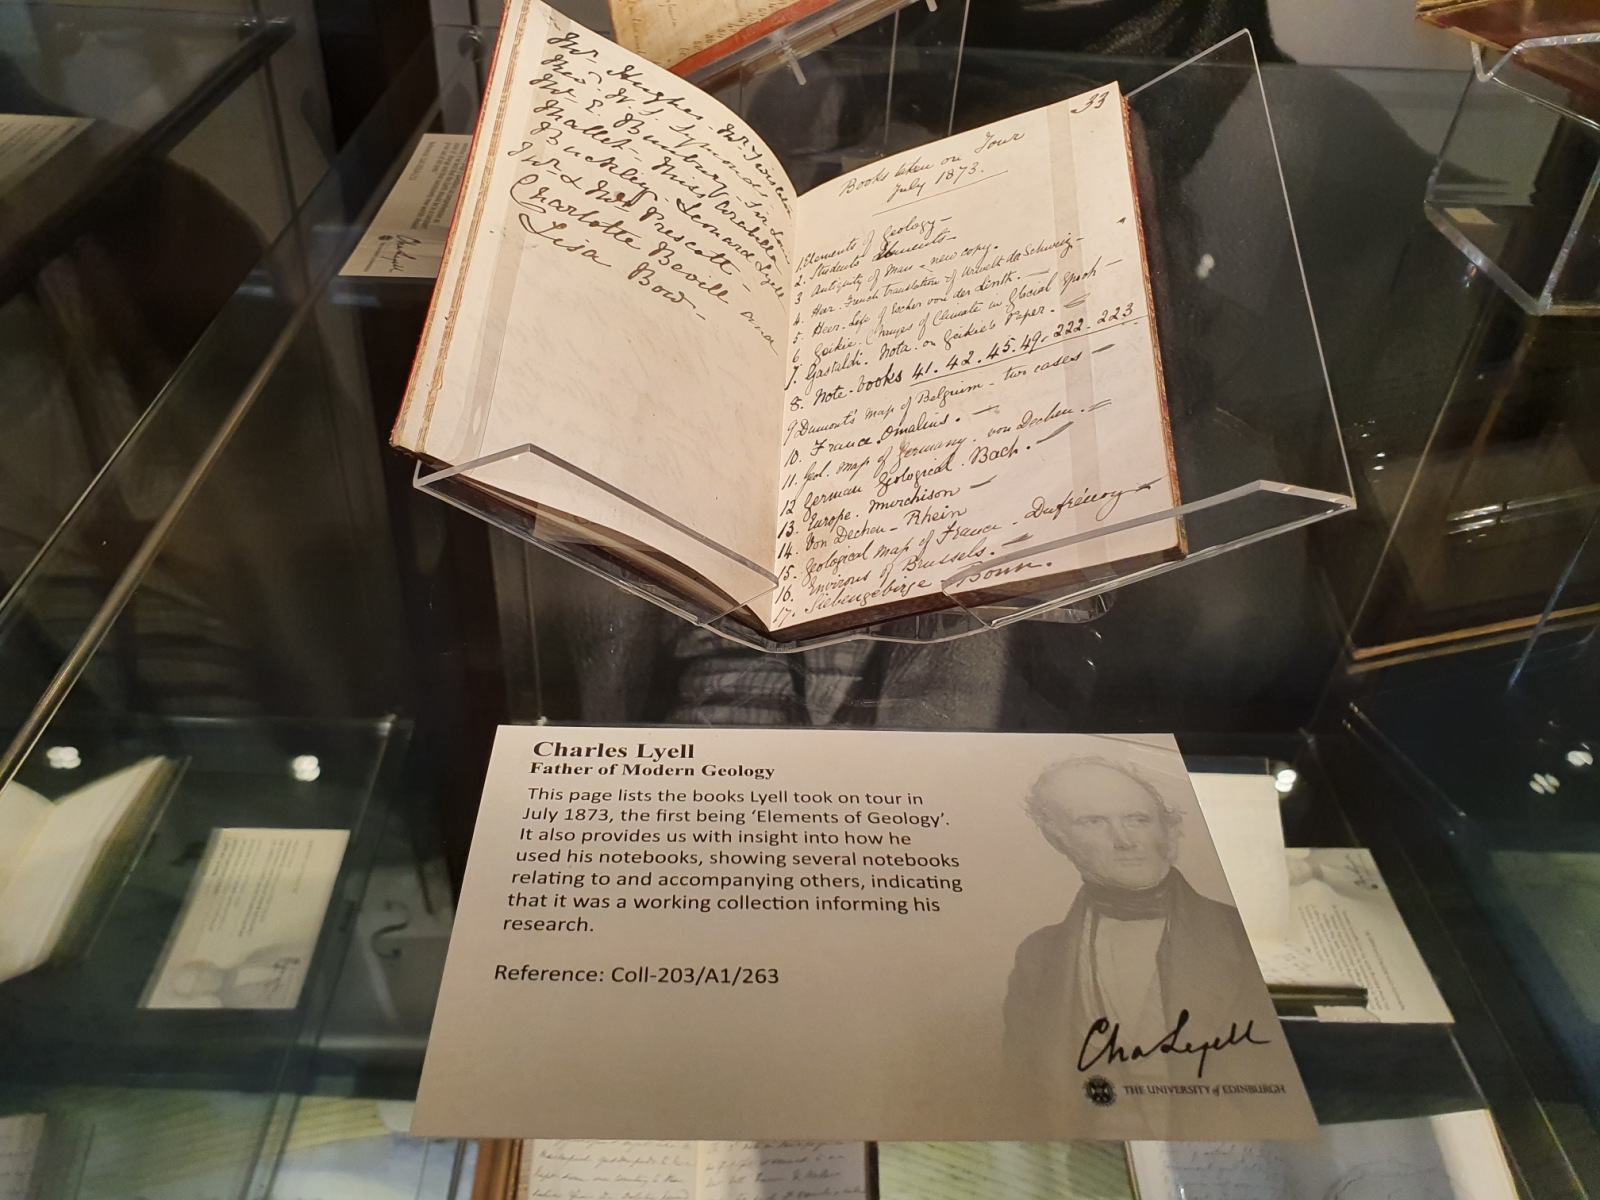 Mr. Hughes. Mr
Rev. W. S. Symonds.
Mr. E. Bunbury. Sir
Mallet - Miss Arabella
Buckley. Leonard Lyell
Mr & Mrs Prescott -
Charlotte Bevill and
Lisa Bow. -
33
Books taken on Tour
July 1873.
1. Elements of Geology -
2. Students Elements -
3 Antiquity of Man - new copy.
4. Heer. French translation of Urwelt der Schweiz -
5. Heer. Life of Escher von der Linth. -
6 Geikie. Changes of Climate in Glacial Epoch -
7. Gastaldi. Nota. on Geikie's Paper. -
8. Note-books 41. 42. 45. 49. 222. 223
9 Dumont's map of Belgium - two cases -
10. France Omalius. -
11. Geol. Map of Germany. von Dechen. =
12 German Geological. Bach. -
13. Europe. Murchison -
14. Von Dechen - Rhein
15. Geological map of France - Dufrénoy -
16. Environs of Brussels. -
17. Siebengebirge - Bonn.
Charles Lyell
Father of Modern Geology
This page lists the books Lyell took on tour in
July 1873, the first being ‘Elements of Geology’.
It also provides us with insight into how he
used his notebooks, showing several notebooks
relating to and accompanying others, indicating
that it was a working collection informing his
research.
Reference: Coll-203/A1/263
Cha Lyell
THE UNIVERSITY of EDINBURGH